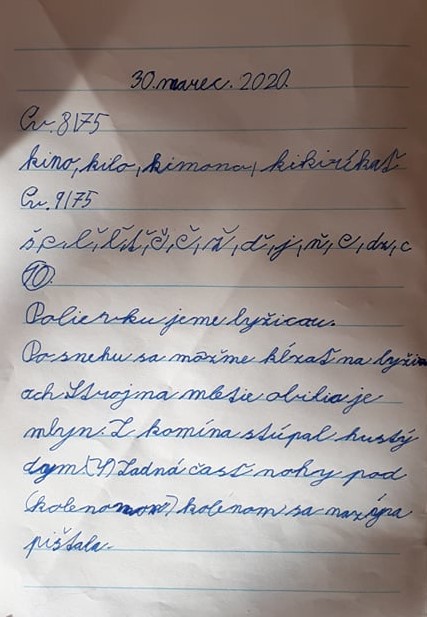 30. marec. 2020.
Cv. 8/75
kino, kilo, kimono, kikiríkať
Cv. 9/75
š, c, ľ, ľ, ť, č, č, ž, ď, j, ň, c, dz, c
10.
Polievku jeme lyžicou.
Po snehu sa môžme kĺzať na lyži
ach Stroj na mletie obilia je
mlyn. Z komína stúpal hustý
dym (Y) Zadná časť nohy pod
(koleno) kolenom sa nazýva
píšťala.